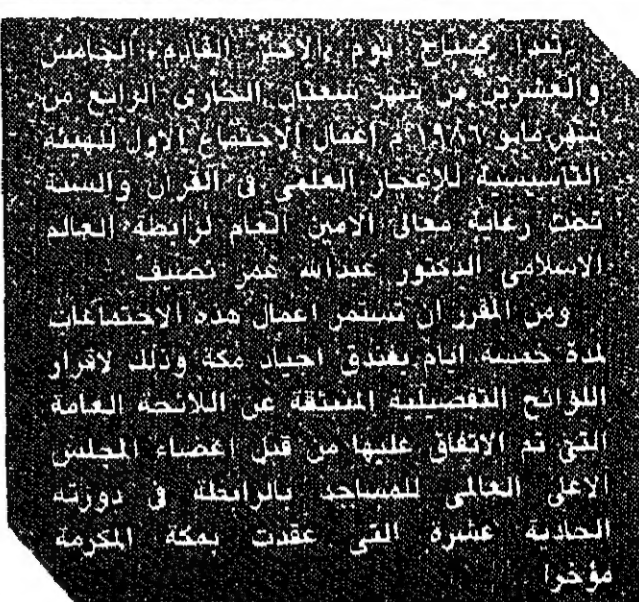 تبدأ صباح يوم الاحد القادم الخامس
والعشرين من شهر شعبان الجارى الرابع من
شهر مايو ١٩٨٦ م اعمال الاجتماع الاول للهيئة
التأسيسية للإعجاز العلمى فى القرآن والسنة
تحت رعاية معالى الامين العام لرابطة العالم
الاسلامى الدكتور عبدالله عمر نصيف
ومن المقرر ان تستمر اعمال هذه الاجتماعات
لمدة خمسة ايام بفندق اجياد مكة وذلك لاقرار
اللوائح التفصيلية المنبثقة عن اللائحة العامة
التى تم الاتفاق عليها من قبل اعضاء المجلس
الاعلى العالمى للمساجد بالرابطة فى دورته
الحادية عشرة التى عقدت بمكة المكرمة
مؤخرا